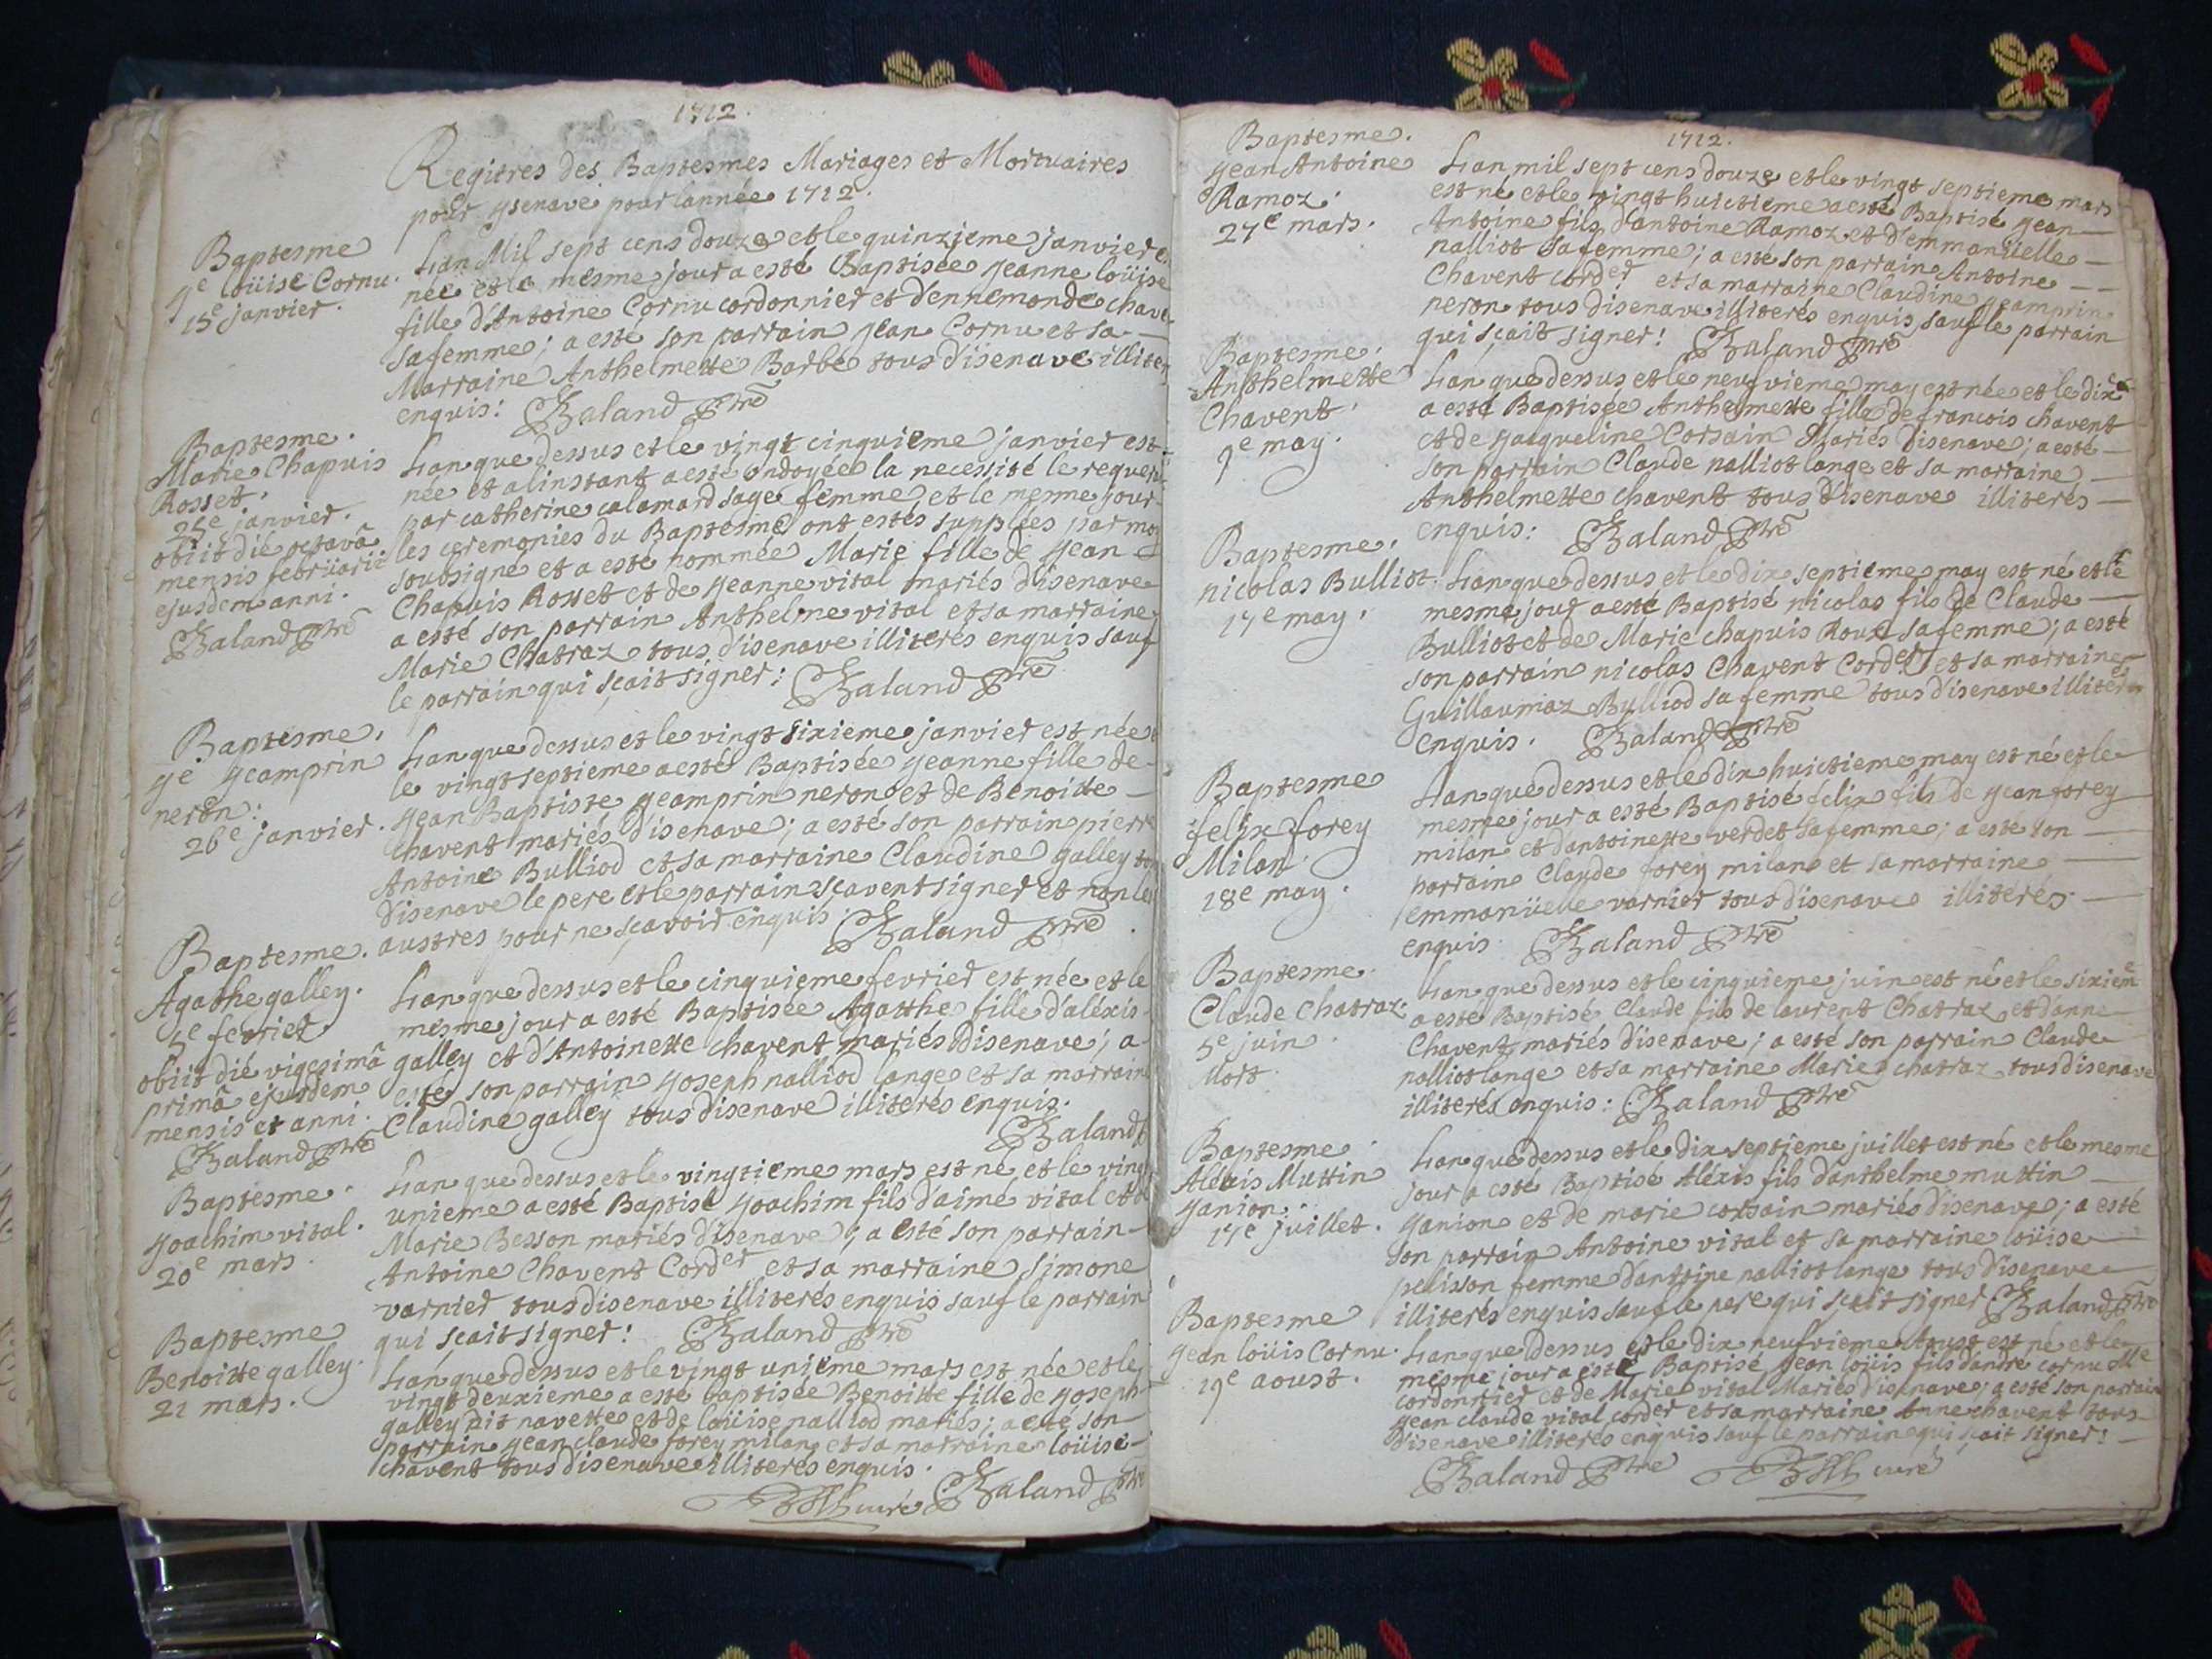 1712.
Regitres des Baptesmes Mariages et Mortuaires
pour ysenave pour lannée 1712.
Baptesme
Je loüise Cornu.
15e janvier.
Lan Mil sept cens douze et le quinzieme janvier
née et le mesme jour a esté Baptisée yeanne loüise
fille d'Antoine Cornu cordonnier et d'ennemonde chave
sa femme; a esté son parrain yean Cornu et sa
Marraine Anthelmette Barbe tous d'isenave illiter
enquis: CBaland ptre
Baptesme.
Marie Chapuis
Rosset.
25e janvier.
obiit die octavâ
mensis februarii
ejusdem anni.
CBaland ptre
Lan que dessus et le vingt cinquieme janvier est
née et a linstant a esté ondoyée la necessité le requer
par catherine calamard sage femme et le mesme jour
les ceremonies du Baptesme ont estés supplées par moy
soubsigné et a esté nommée Marie fille de yean
Chapuis Rosset et de yeanne vital mariés d'isenave
a esté son parrain Anthelme vital et sa marraine
Marie Chatraz tous d'isenave illiterés enquis sauf
le parrain qui sçait signer: CBaland ptre
Baptesme.
ye yeamprin
neron:
26e janvier.
Lan que dessus et le vingt sixieme janvier est née
le vingt septieme a esté Baptisée yeanne fille de
yean Baptiste yeamprin neron et de Benoitte
chavent mariés d'isenave; a esté son parrain pierre
Antoine Bulliod et sa marraine Claudine galley
d'isenave le pere et le parrain sçavent signer et non les
austres pour ne sçavoir enquis. CBaland ptre
Baptesme.
Agathe galley.
5e fevrier
obiit dié vigesimâ
primâ ejusdem
mensis et anni.
CBaland ptre
Lan que dessus et le cinquieme fevrier est née et le
mesme jour a esté Baptisée Agatthe fille d'aléxis
galley et d'Antoinette chavent mariés D'isenave; a
esté son parrain yoseph nalliod lange et sa marraine
Claudine galley tous d'isenave illiterés enquis.
CBaland
Baptesme.
yoachim vital.
20e mars.
Lan que dessus et le vingtieme mars est né et le vingt
unieme a esté Baptisé yoachim fils d'aimé vital et
Marie Besson mariés d'isenave; a esté son parrain
Antoine Chavent Corder et sa marraine simone
varnier tous d'isenave illiterés enquis sauf le parrain
qui sçait signer! CBaland ptre
Baptesme
Benoitte galley.
21 mars.
Lan que dessus et le vingt unieme mars est née et le
vingt deuxieme a esté baptisée Benoitte fille de yoseph
galley dit navette et de loüise nalliod mariés; a esté son
parrain yean claude forey milan et sa marraine loüise
chavent tous d'isenave illiterés enquis.
curé CBaland ptre
1712.
Baptesme.
yean Antoine
Ramoz.
27e mars.
Lan mil sept cens douze et le vingt septieme mars
est né et le vingt huictieme a esté Baptisé yean
Antoine fils d'antoine Ramoz et d'emmanüelle
nalliot sa femme; a esté son parrain Antoine
Chavent corder et sa marraine Claudine yeamprin
neron tous d'isenave illiterés enquis sauf le parrain
qui sçait signer! CBaland ptre
Baptesme.
Anthelmette
Chavent.
9e may.
Lan que dessus et le neufvieme may est née et le dix
a esté Baptisée Anthelmette fille de francois chavent
et de yacqueline Corsain Mariés d'isenave; a esté
son parrain Claude nalliot lange et sa marraine
Anthelmette chavent tous d'isenave illiterés
enquis: CBaland ptre
Baptesme.
nicolas Bulliot.
17e may.
Lan que dessus et le dix septieme may est né et le
mesme jour a esté Baptisé nicolas fils de Claude
Bulliot et de Marie chapuis Roux sa femme; a esté
son parrain nicolas Chavent Corder et sa marraine
Guillaumaz Bylliod sa femme tous d'isenave illiterés
enquis. CBaland ptre
Baptesme
felix forey
Milan.
18e may.
Lan que dessus et le dix huictieme may est né et le
mesme jour a esté Baptisé felix fils de yean forey
milan et d'antoinette verdet sa femme; a esté son
parrain Claude forey milan et sa marraine
emmanüelle varnier tous d'isenave illiterés.
enquis. CBaland ptre
Baptesme.
Claude Chatraz.
5e juin.
Mort.
Lan que dessus et le cinquieme juin est né et le sixiem
a esté Baptisé Claude fils de laurent Chatraz et d'anne
Chavent mariés d'isenave; a esté son parrain Claude
nalliot lange et sa marraine Marie chatraz tous d'isenave
illiterés enquis: CBaland ptre
Baptesme.
Aléxis Muttin
yanion.
17e juillet.
Lan que dessus et le dix septieme juillet est né et le mesme
jour a esté Baptisé Aléxis fils d'anthelme muttin
yanion et de marie corsain mariés d'isenave; a esté
son parrain Antoine vital et sa marraine loüise
pelisson femme d'antoine nalliot lange tous d'isenave
illiterés enquis sauf le pere qui sçait signer CBaland ptre
Baptesme
yean loüis Cornu.
19e aoust.
Lan que dessus et le dix neufvieme Aoust est né et le
mesme jour a esté Baptisé yean loüis fils d'andré cornu Me
cordonnier et de Marie vital Mariés d'isenave; a esté son parrain
yean claude vital corder et sa marraine Anne chavent tous
d'isenave illiterés enquis sauf le parrain qui sçait signer!
CBaland ptre curé